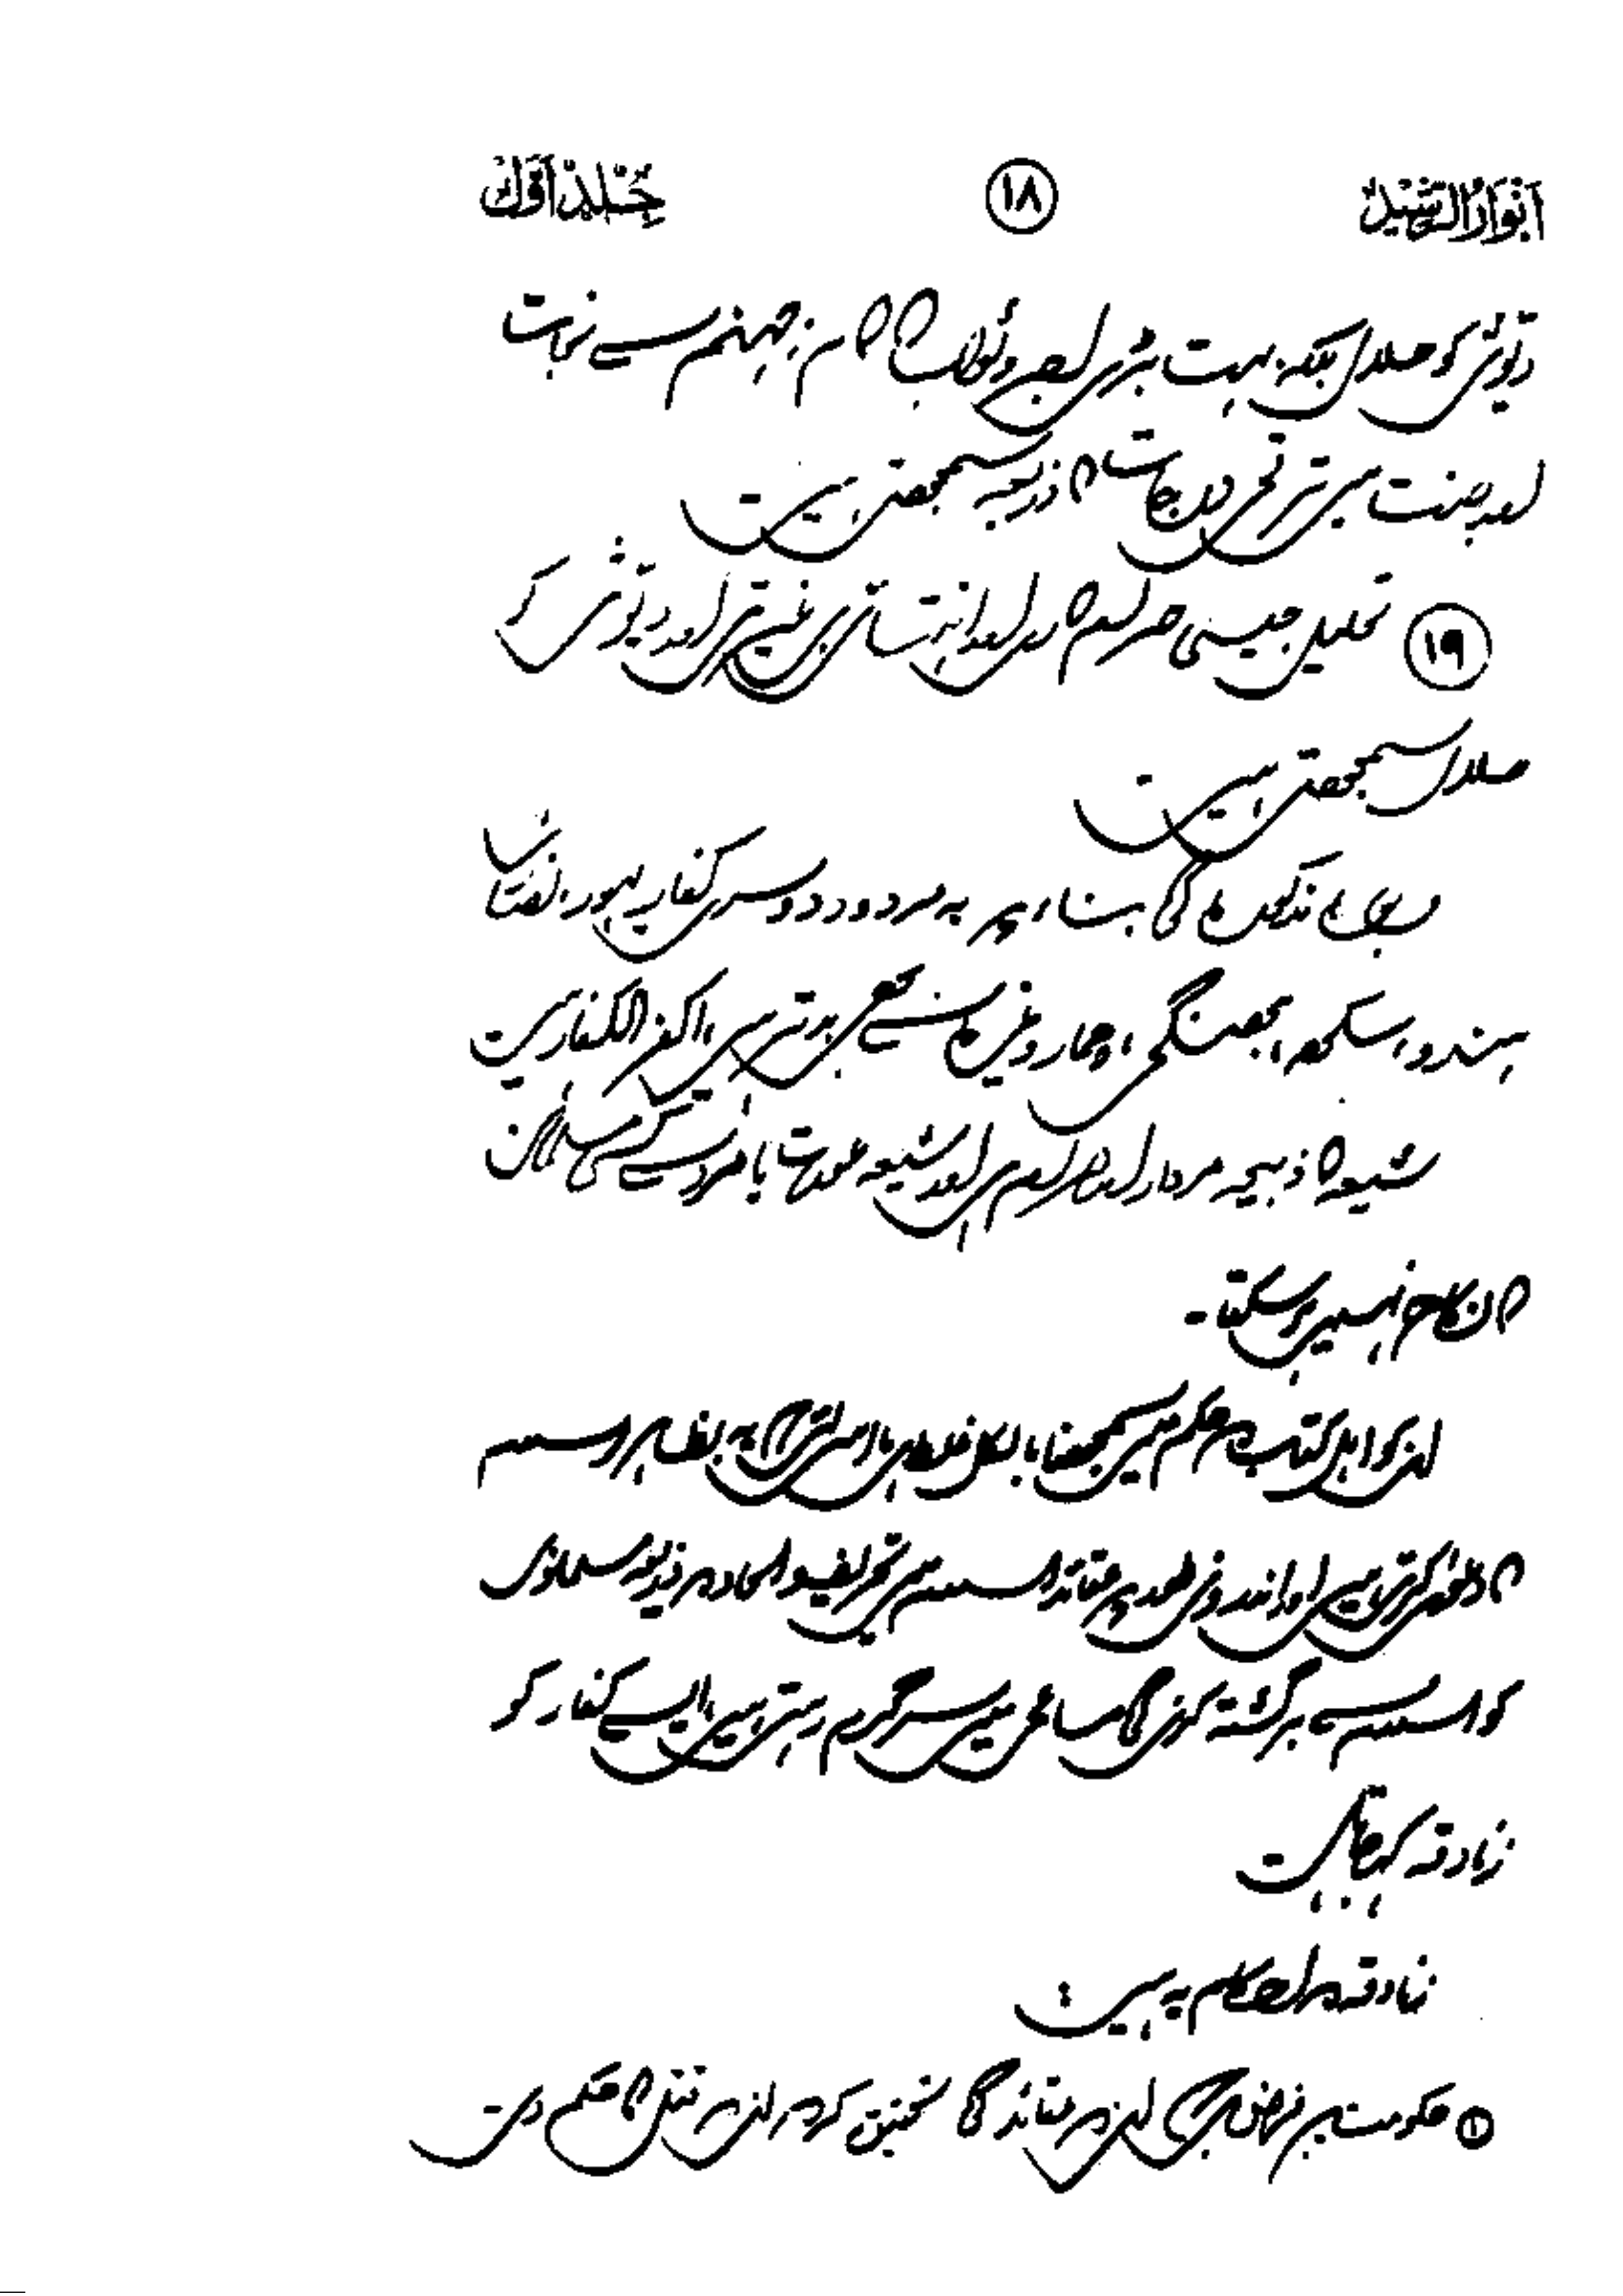 انوار الرشید ۱۸ جلد اول
دیوثی کو حلال بلکہ بہت بڑے اجر و ثواب کا کام، جہنم سے نجات
اور جنت میں ترقی درجات کا ذریعہ سمجھتے ہیں۔
۱۹ تحلیل جیسی حرام کاری اور انتہائی بے غیرتی اور دیوثی کو
حلال سمجھتے ہیں۔
وجوہ مذکورہ کی بناء پر یہ مردود دوسرے کفار یہود، نصاریٰ
ہندو، سکھ، بھنگی، چمار وغیرہ سے بھی بدتر ہیں، اکفر الکفار ہیں
شیعہ کا ذبیحہ مردار اور حرام ہے اور شیعہ عورت یا مرد سے کسی مسلمان
کا نکاح نہیں ہو سکتا۔
ان کو اہل کتاب کے حکم میں سمجھنا بالکل غلط ہے، اس لئے کہ یہ بظاہر اسلام
کا دعویٰ کرتے ہیں اور اندرونی طور پر عقائد اسلام میں تحریف و الحاد کے ذریعہ مسلمانوں
کو اسلام سے برگشتہ کرنے کی مساعی میں سرگرم رہتے ہیں، ایسے کفار کو
زنادقہ کہا جاتا ہے۔
زنادقہ کے احکام یہ ہیں:
۱ حکومت پر فرض ہے کہ ان کے عقائد کی تحقیق کر کے ان کے قتل کا حکم دے۔